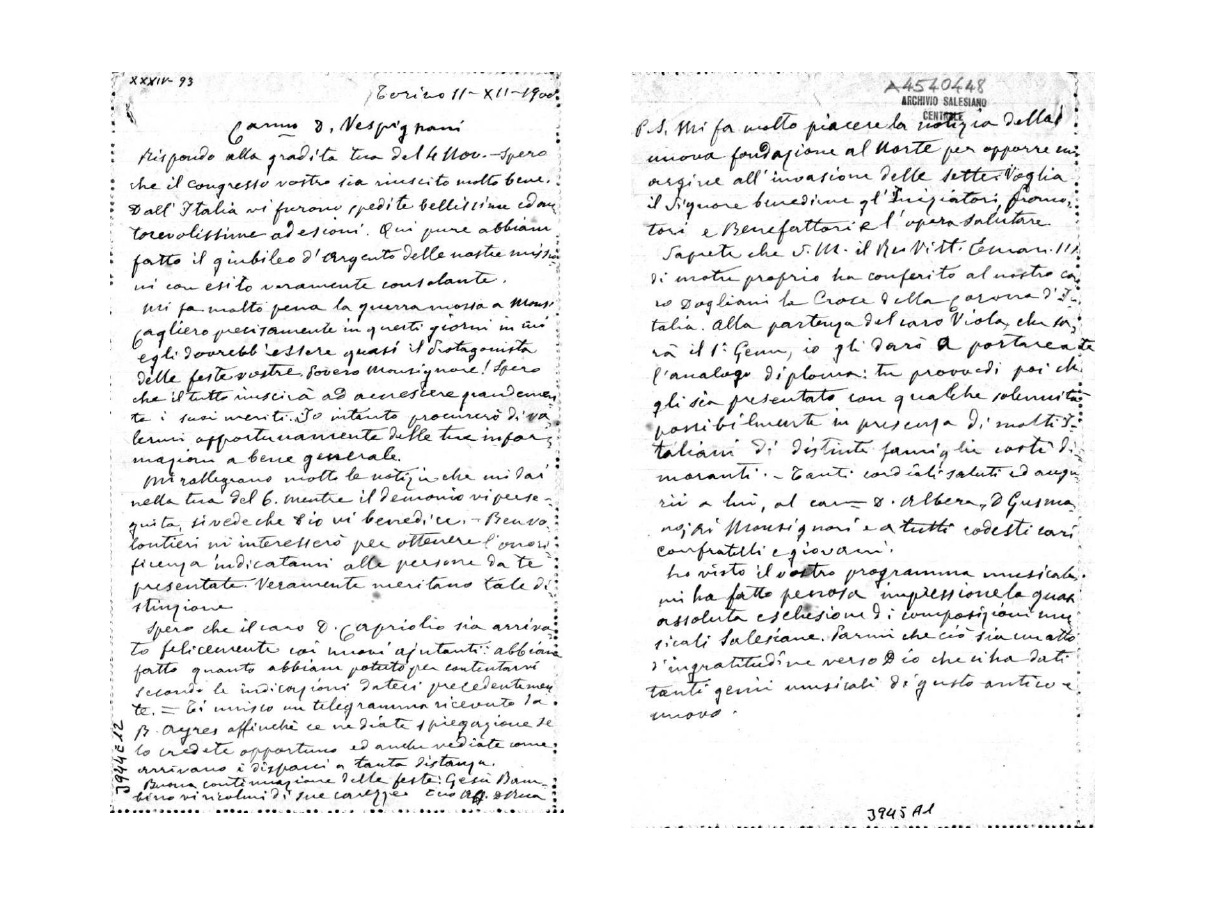 XXXIV-93
Torino 11-XII-1900
Carmo D. Vespignani
Rispondo alla gradita tua del 4 Nov. - Spero
che il congresso vostro sia riuscito molto bene.
Dall'Italia vi furono spedite bellissime ed au
torevolissime adesioni. Qui pure abbiam
fatto il giubileo d'argento delle nostre missio
ni con esito veramente consolante.
Mi fa molto pena la guerra mossa a Mons.
Cagliero precisamente in questi giorni in cui
egli dovrebb'essere quasi il Protagonista
delle feste vostre. Povero Monsignore! Spero
che il tutto riuscirà ad accrescere grandemen
te i suoi meriti. Io intanto procurerò di va
lermi opportunamente delle tue infor=
mazioni a bene generale.
Mi rallegrano molto le notizie che mi dai
nella tua del 6. Mentre il demonio vi perse-
guita, si vede che Dio vi benedice. - Ben vo
lontieri mi interesserò per ottenere l'onori
ficenza indicatami alle persone da te
presentate. Veramente meritano tale di
stinzione
Spero che il caro D. Capriolio sia arriva
to felicemente coi nuovi ajutanti: abbiam
fatto quanto abbiam potuto per contentarvi
secondo le indicazioni dateci precedentemen
te. = Ti unisco un telegramma ricevuto da
B. Ayres affinchè ce ne diate spiegazione se
lo credete opportuno ed anche vediate come
arrivano i dispacci a tanta distanza.
Buona continuazione delle feste: Gesù Bam-
bino vi ricolmi di sue carezze tuo Aff. D Rua
3944 E 12
A4540448
ARCHIVIO SALESIANO
CENTRALE
P.S. Mi fa molto piacere la notizia della
nuova fondazione al Norte per opporre un
argine all'invasione delle sette. Voglia
il Signore benedirne gl'Iniziatori, promo,
tori e Benefattori e l'opera salutare.
Sapete che S.M. il Re Vitt. Eman. III
di motu proprio ha conferito al nostro ca
ro Dogliani la Croce della Corona d'I-
talia. Alla partenza del caro Viola, che sa,
rà il 1° Genn, io gli darò a portare a te
l'analogo diploma: tu provvedi poi che
gli sia presentato con qualche solennità
possibilmente in presenza di molti I-
taliani di distinte famiglie costì di-
moranti. - Tanti cordiali saluti ed augu
rii a lui, al carmo D. Albera, D Gusma
no, ai Monsignori e a tutti codesti cari
confratelli e giovani.
Ho visto il vostro programma musicale.
mi ha fatto penosa impressione la quasi
assoluta esclusione di composizioni mu
sicali Salesiane. Parmi che ciò sia un atto
d'ingratitudine verso Dio che ci ha dati
tanti genii musicali di gusto antico e
nuovo.
3945 A1